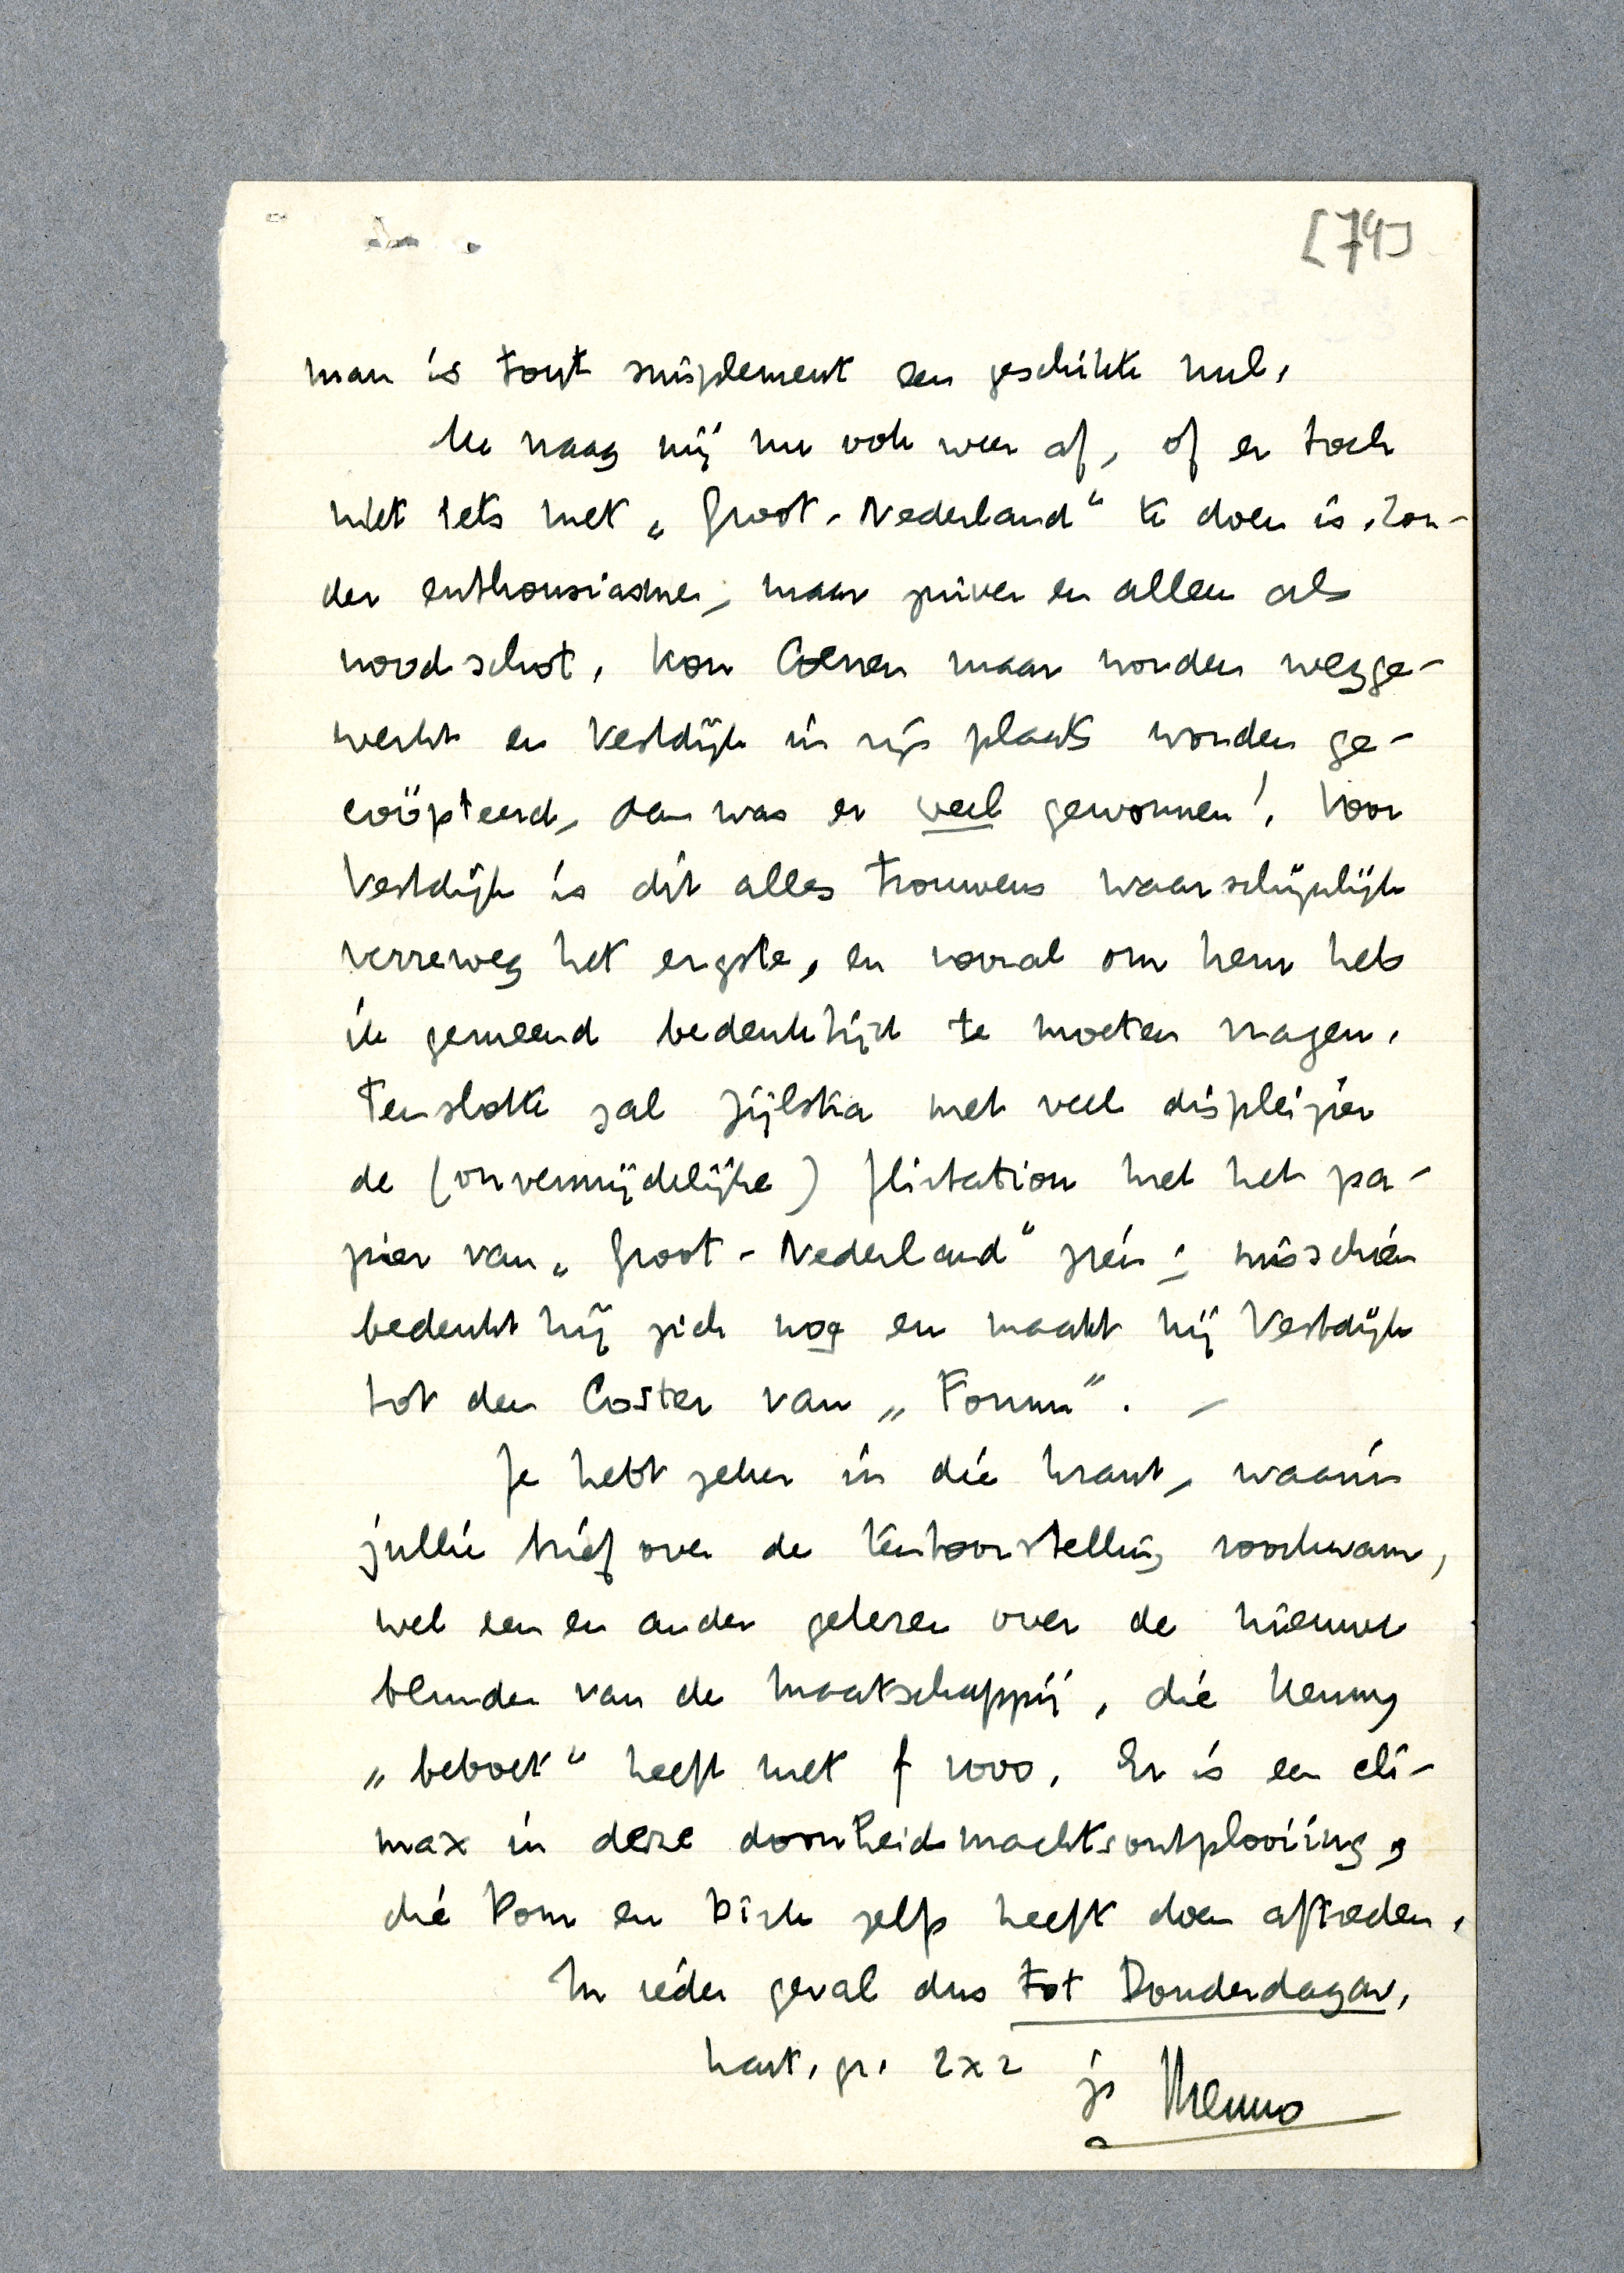 [74]
man is tout simplement een geschikte nul.
Ik vraag mij nu ook weer af, of er toch
niet iets met „Groot-Nederland" te doen is. Zon-
der enthousiasme, maar zuiver en alleen als
noodschot. Kon Coenen maar worden wegge-
werkt en Vestdijk in zijn plaats worden ge-
coöpteerd, dan was er veel gewonnen! Voor
Vestdijk is dit alles trouwens waarschijnlijk
verreweg het ergste, en vooral om hem heb
ik gemeend bedenktijd te moeten vragen.
Tenslotte zal Zijlstra met veel displeizier
de (onvermijdelijke) flirtation met het pa-
pier van „Groot-Nederland" zien; misschien
bedenkt hij zich nog en maakt hij Vestdijk
tot den Coster van „Forum". —
Je hebt zeker in die krant, waarin
jullie brief over de tentoonstelling voorkwam,
wel een en ander gelezen over de nieuwe
blunder van de Maatschappij, die Kenny
„beboet" heeft met f 1000. Er is een cli-
max in deze doorheidsmachtsontplooiing,
die Pom en Bink zelfs heeft doen aftreden.
In ieder geval dus tot Donderdagav.
hart. gr. 2x2
je Menno